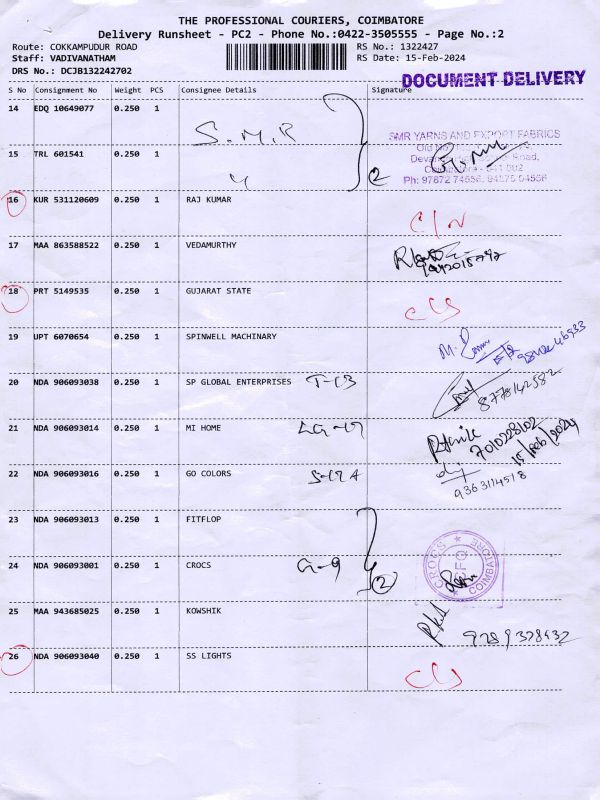 THE PROFESSIONAL COURIERS, COIMBATORE
Delivery Runsheet - PC2 - Phone No.:0422-3505555 - Page No.:2
Route: COKKAMPUDUR ROAD
Staff: VADIVANATHAM
DRS No.: DCJB132242702
RS No.: 1322427
RS Date: 15-Feb-2024
DOCUMENT DELIVERY
S No Consignment No Weight PCS Consignee Details Signature
14 EDQ 10649077 0.250 1
S.M.R
SMR YARNS AND EXPORT FABRICS
15 TRL 601541 0.250 1
2
16 KUR 531120609 0.250 1 RAJ KUMAR
17 MAA 863588522 0.250 1 VEDAMURTHY
18 PRT 5149535 0.250 1 GUJARAT STATE
19 UPT 6070654 0.250 1 SPINWELL MACHINARY
20 NDA 906093038 0.250 1 SP GLOBAL ENTERPRISES
8778142582
21 NDA 906093014 0.250 1 MI HOME
7010228102
15/Feb/2024
22 NDA 906093016 0.250 1 GO COLORS
9363114518
23 NDA 906093013 0.250 1 FITFLOP
24 NDA 906093001 0.250 1 CROCS G-9
2
CROCS CFQ COIMBATORE
25 MAA 943685025 0.250 1 KOWSHIK
26 NDA 906093040 0.250 1 SS LIGHTS